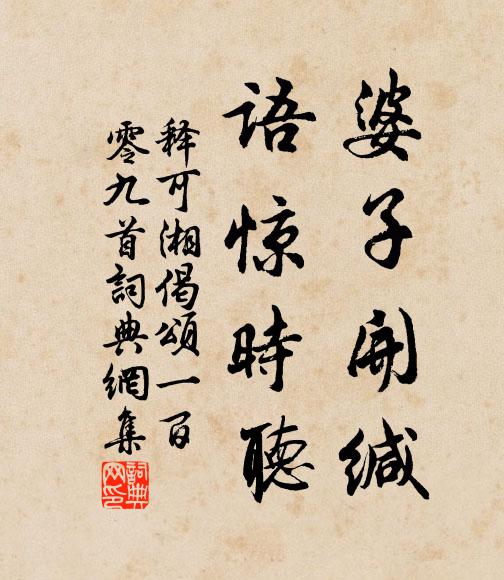 婆子開緘
语惊時聴
释可湘偈頌一百
零九首詞典網集
詞典網印